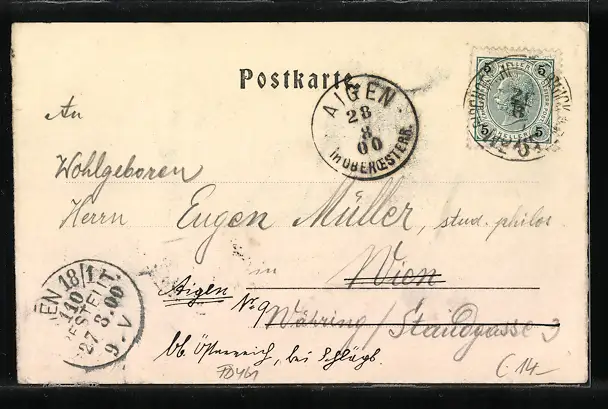 Postkarte
AIGEN
28
8
00
in OBERŒSTERR.
5 5
5 5
An
Wohlgeboren
Herrn Eugen Müller, stud. philos.
in Wien
Aigen No 9
Währing / Staudgasse 3
Ob. Österreich, bei Schlägl.
WIEN 18/1
110
BESTELLT
27. 8. 00
9 - V
C 14.-